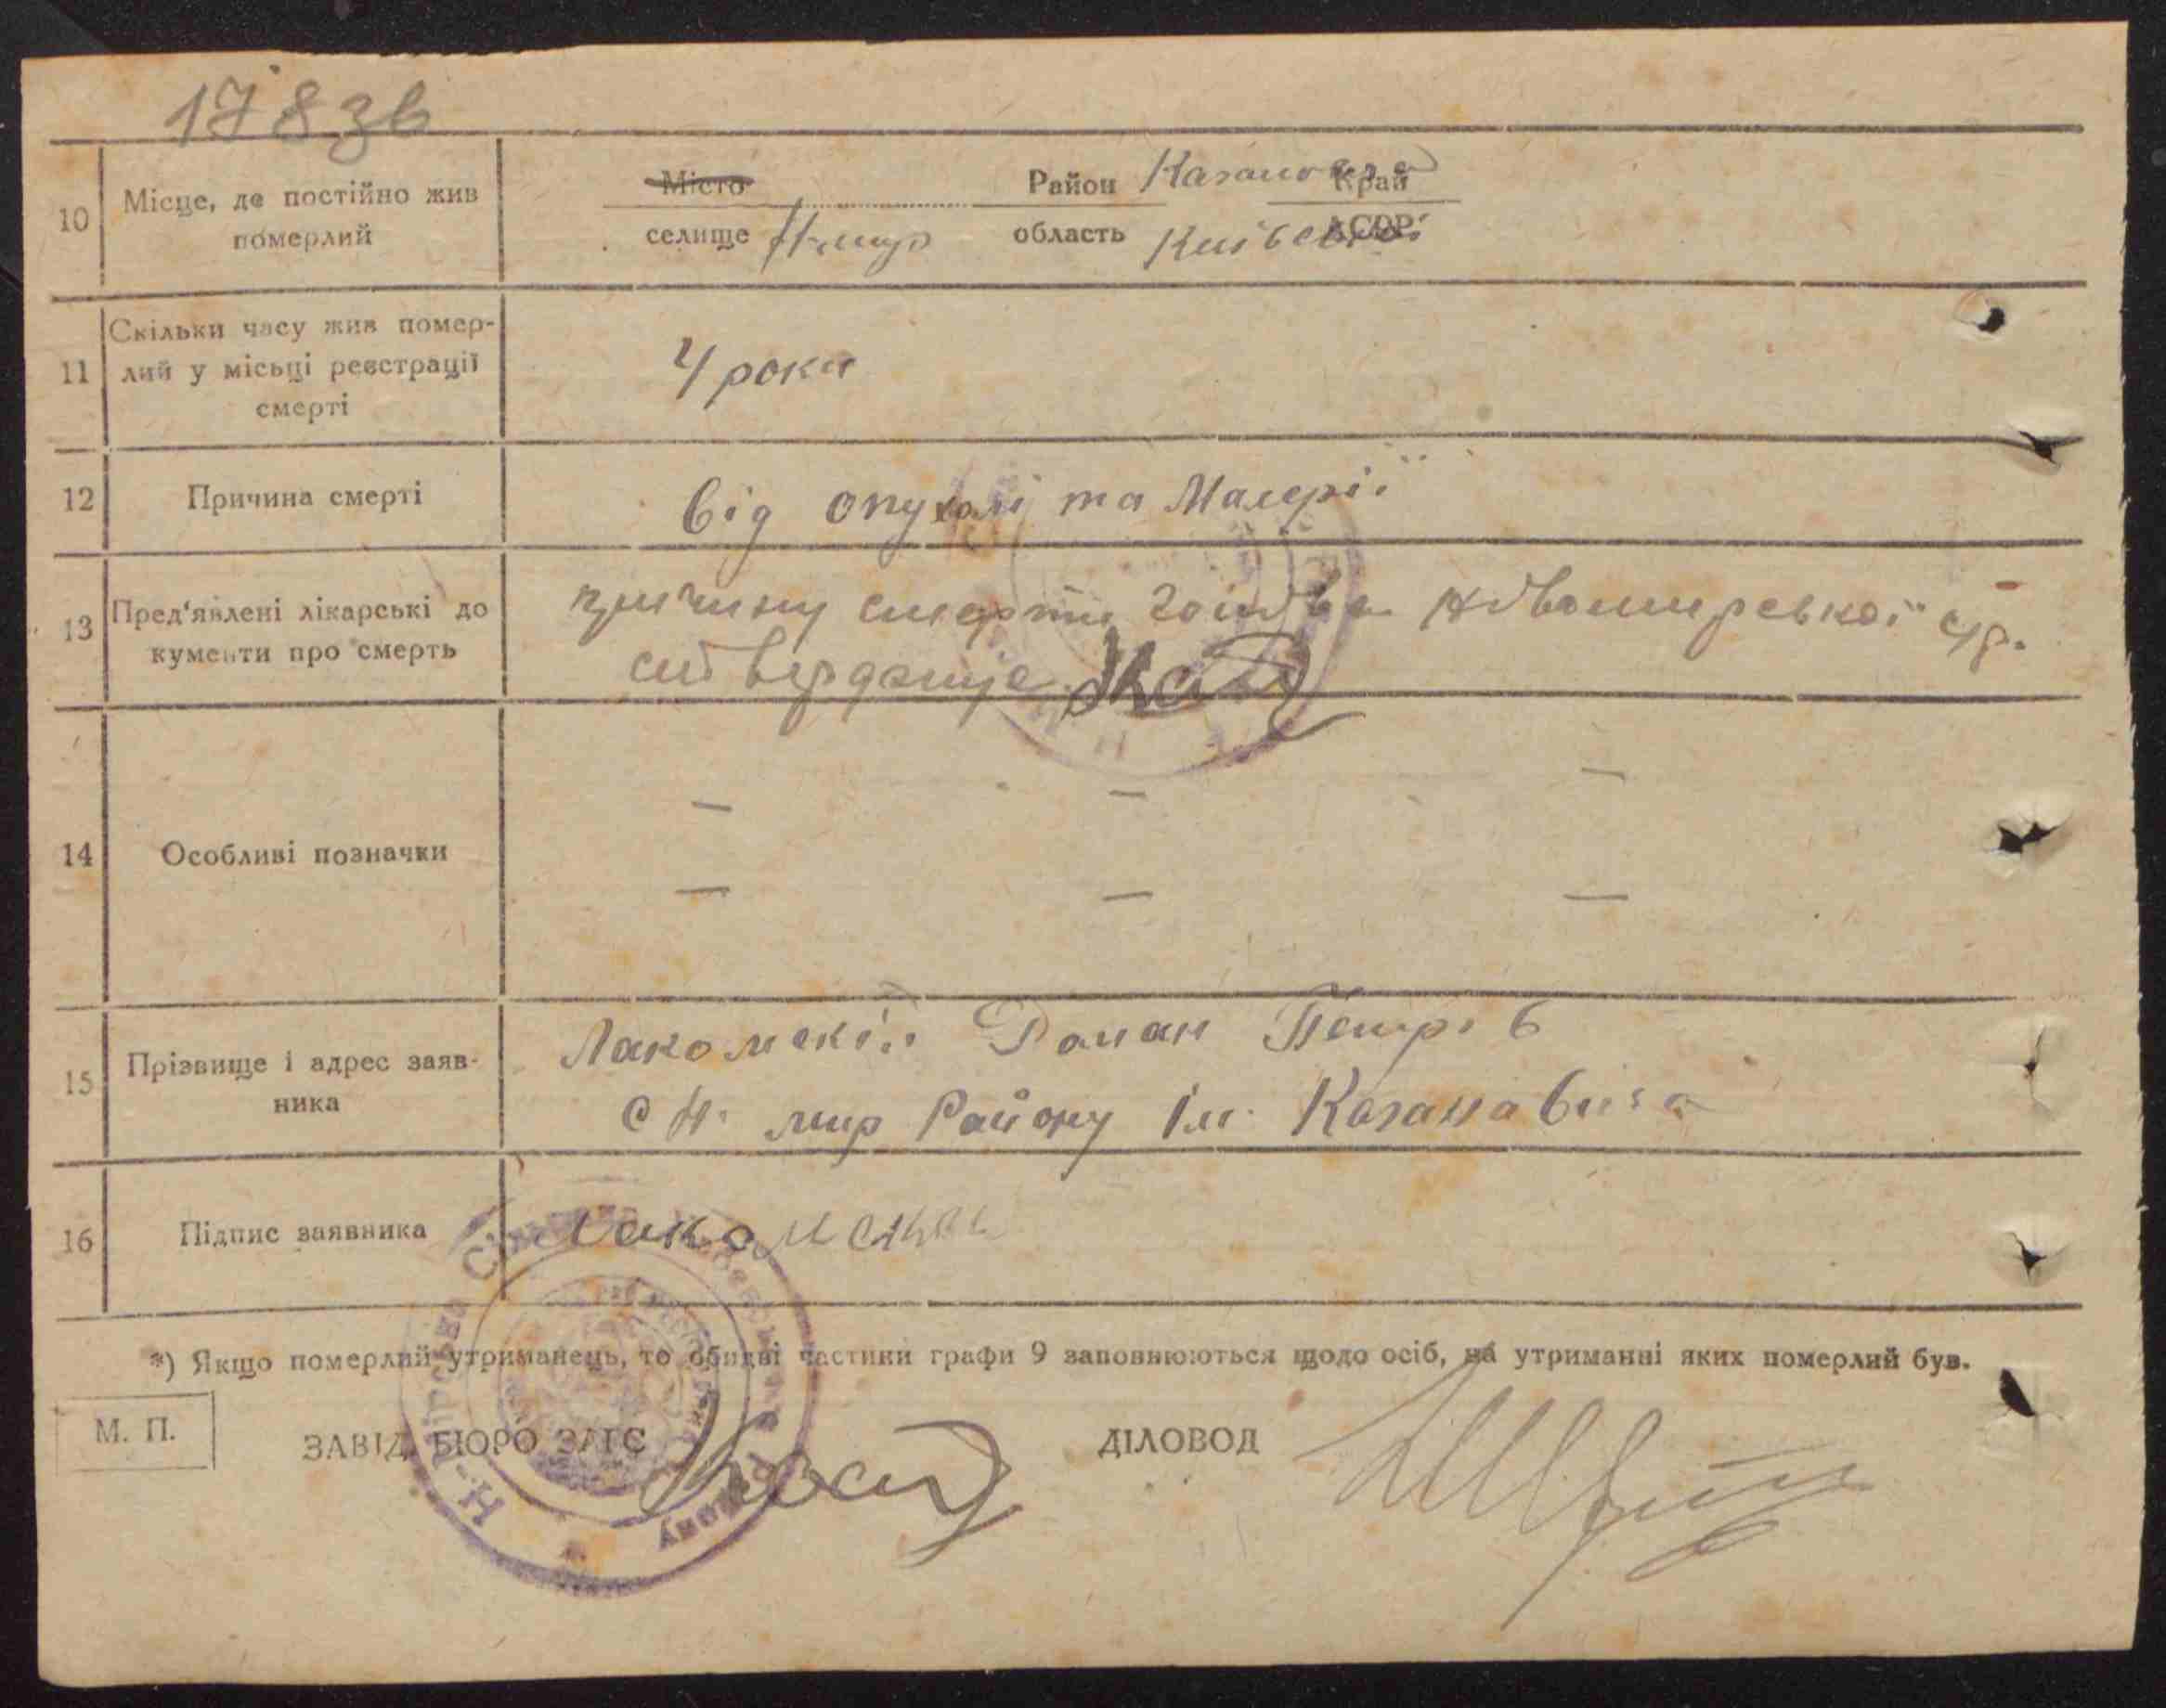 178 зв
10 Місце, де постійно жив померлий
Місто Район Кагановича Край
селище Н-мир область Київської АСРР
11 Скільки часу жив помер-
лий у місьці реєстрації
смерті
4 роки
12 Причина смерті
Від опухолі та Малерії
13 Пред'явлені лікарські до
кументи про смерть
причину смерти голова Новомирської с/р.
14 Особливі позначки
— — —
— — —
15 Прізвище і адрес заяв-
ника
Лакомский Роман Петрів
с Н. мир Району Ім. Кагановича
16 Підпис заявника
Лакомский
*) Якщо померлий утриманець, то обидві частини графи 9 заповнюються щодо осіб, на утриманні яких померлий був.
М. П. ЗАВІД. БЮРО ЗАГС ДІЛОВОД